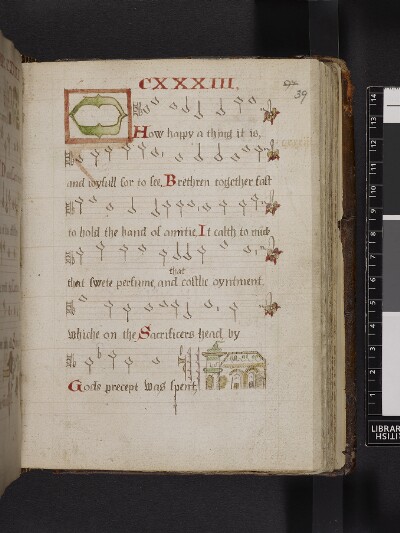 CXXXIII.
39
O
How happy a thing it is,
and ioyfull for to see, Brethren together fast
to hold the band of amitie, It calth to mide
that
that swete perfume, and costlie oyntment,
whiche on the Sacrificers head, by
Gods precept was spent,
14
13
12
11
10
9
8
7
6
5
4
3
2
1
LIBRAR